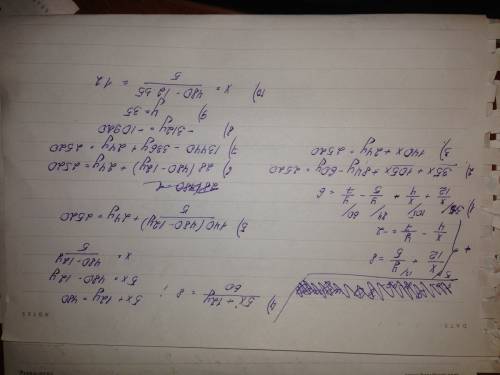 DATE
NOTES
x/12 + y/5 = 8
x/4 - y/7 = -2
1) x/12 + x/4 + y/5 - y/7 = 6
35/ 105/ 84/ 60/
2) 35x + 105x + 84y - 60y = 2520
3) 140x + 24y = 2520
4) (5x + 12y)/60 = 8 ; 5x + 12y = 480
5x = 480 - 12y
x = (480 - 12y)/5
5) 140(480 - 12y)/5 + 24y = 2520
6) 28(480 - 12y) + 24y = 2520
7) 13440 - 336y + 24y = 2520
8) -312y = -10920
9) y = 35
10) x = (480 - 12·35)/5 = 12